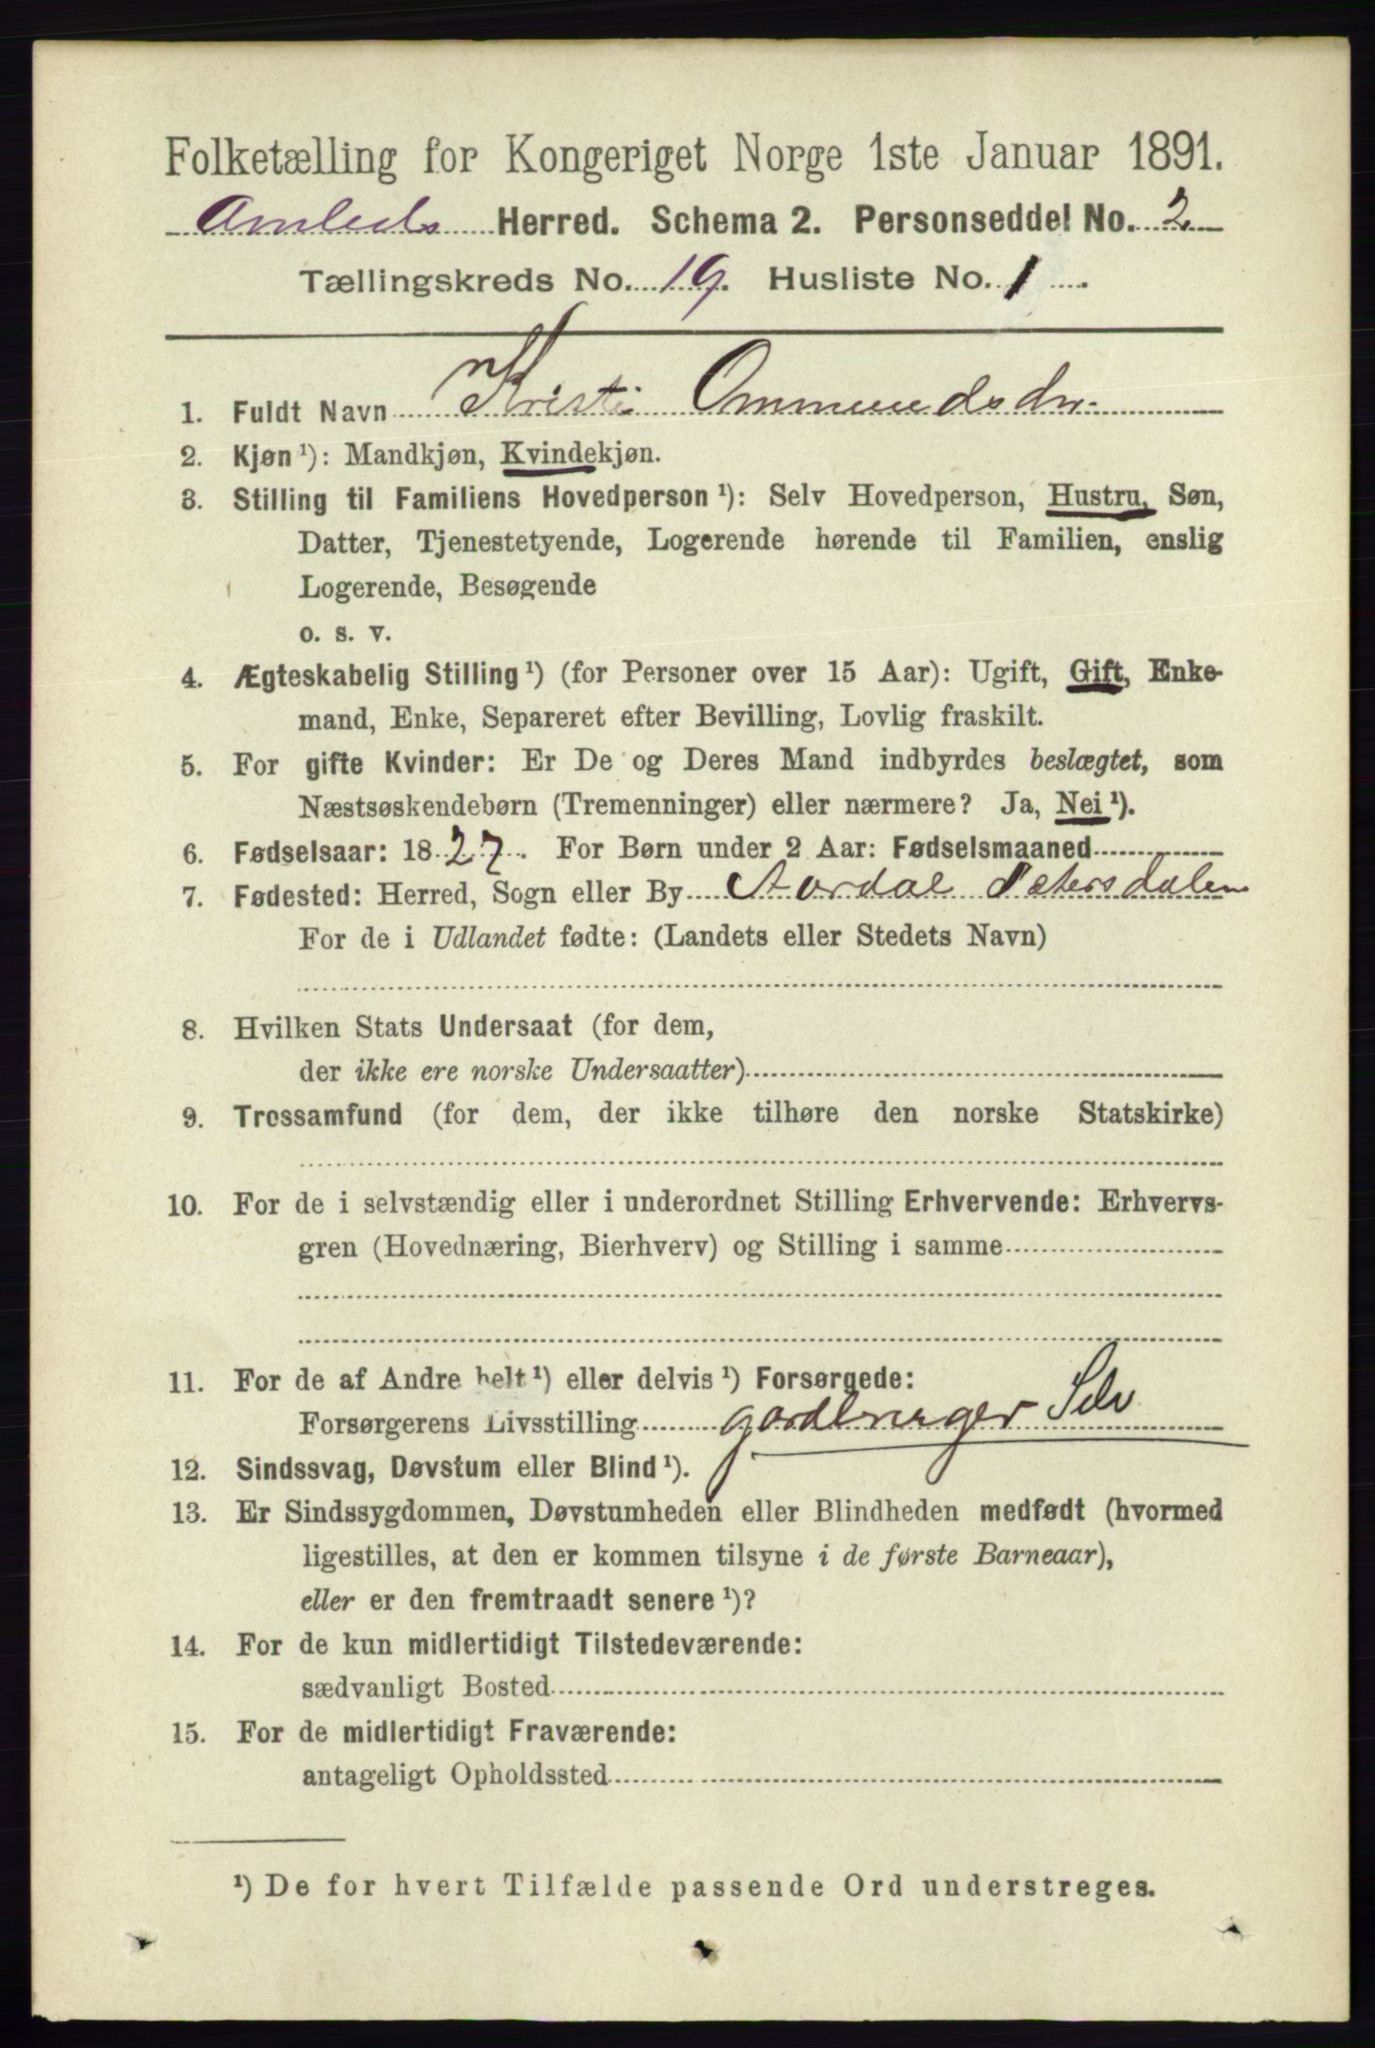 Folketælling for Kongeriget Norge 1ste Januar 1891.
Omlids Herred. Schema 2. Personseddel No. 2
Tællingskreds No. 19. Husliste No. 1.
1. Fuldt Navn Kristi Ommundsdr.
2. Kjøn ¹): Mandkjøn, Kvindekjøn.
3. Stilling til Familiens Hovedperson ¹): Selv Hovedperson, Hustru, Søn,
Datter, Tjenestetyende, Logerende hørende til Familien, enslig
Logerende, Besøgende
o. s. v.
4. Ægteskabelig Stilling ¹) (for Personer over 15 Aar): Ugift, Gift, Enke-
mand, Enke, Separeret efter Bevilling, Lovlig fraskilt.
5. For gifte Kvinder: Er De og Deres Mand indbyrdes beslægtet, som
Næstsøskendebørn (Tremenninger) eller nærmere? Ja, Nei ¹).
6. Fødselsaar: 1827. For Børn under 2 Aar: Fødselsmaaned
7. Fødested: Herred, Sogn eller By Aardal Sætersdalen
For de i Udlandet fødte: (Landets eller Stedets Navn)
8. Hvilken Stats Undersaat (for dem,
der ikke ere norske Undersaatter)
9. Trossamfund (for dem, der ikke tilhøre den norske Statskirke)
10. For de i selvstændig eller i underordnet Stilling Erhvervende: Erhvervs-
gren (Hovednæring, Bierhverv) og Stilling i samme
11. For de af Andre helt ¹) eller delvis ¹) Forsørgede:
Forsørgerens Livsstilling gardbruger Selv
12. Sindssvag, Døvstum eller Blind ¹).
13. Er Sindssygdommen, Døvstumheden eller Blindheden medfødt (hvormed
ligestilles, at den er kommen tilsyne i de første Barneaar),
eller er den fremtraadt senere ¹)?
14. For de kun midlertidigt Tilstedeværende:
sædvanligt Bosted
15. For de midlertidigt Fraværende:
antageligt Opholdssted
¹) De for hvert Tilfælde passende Ord understreges.